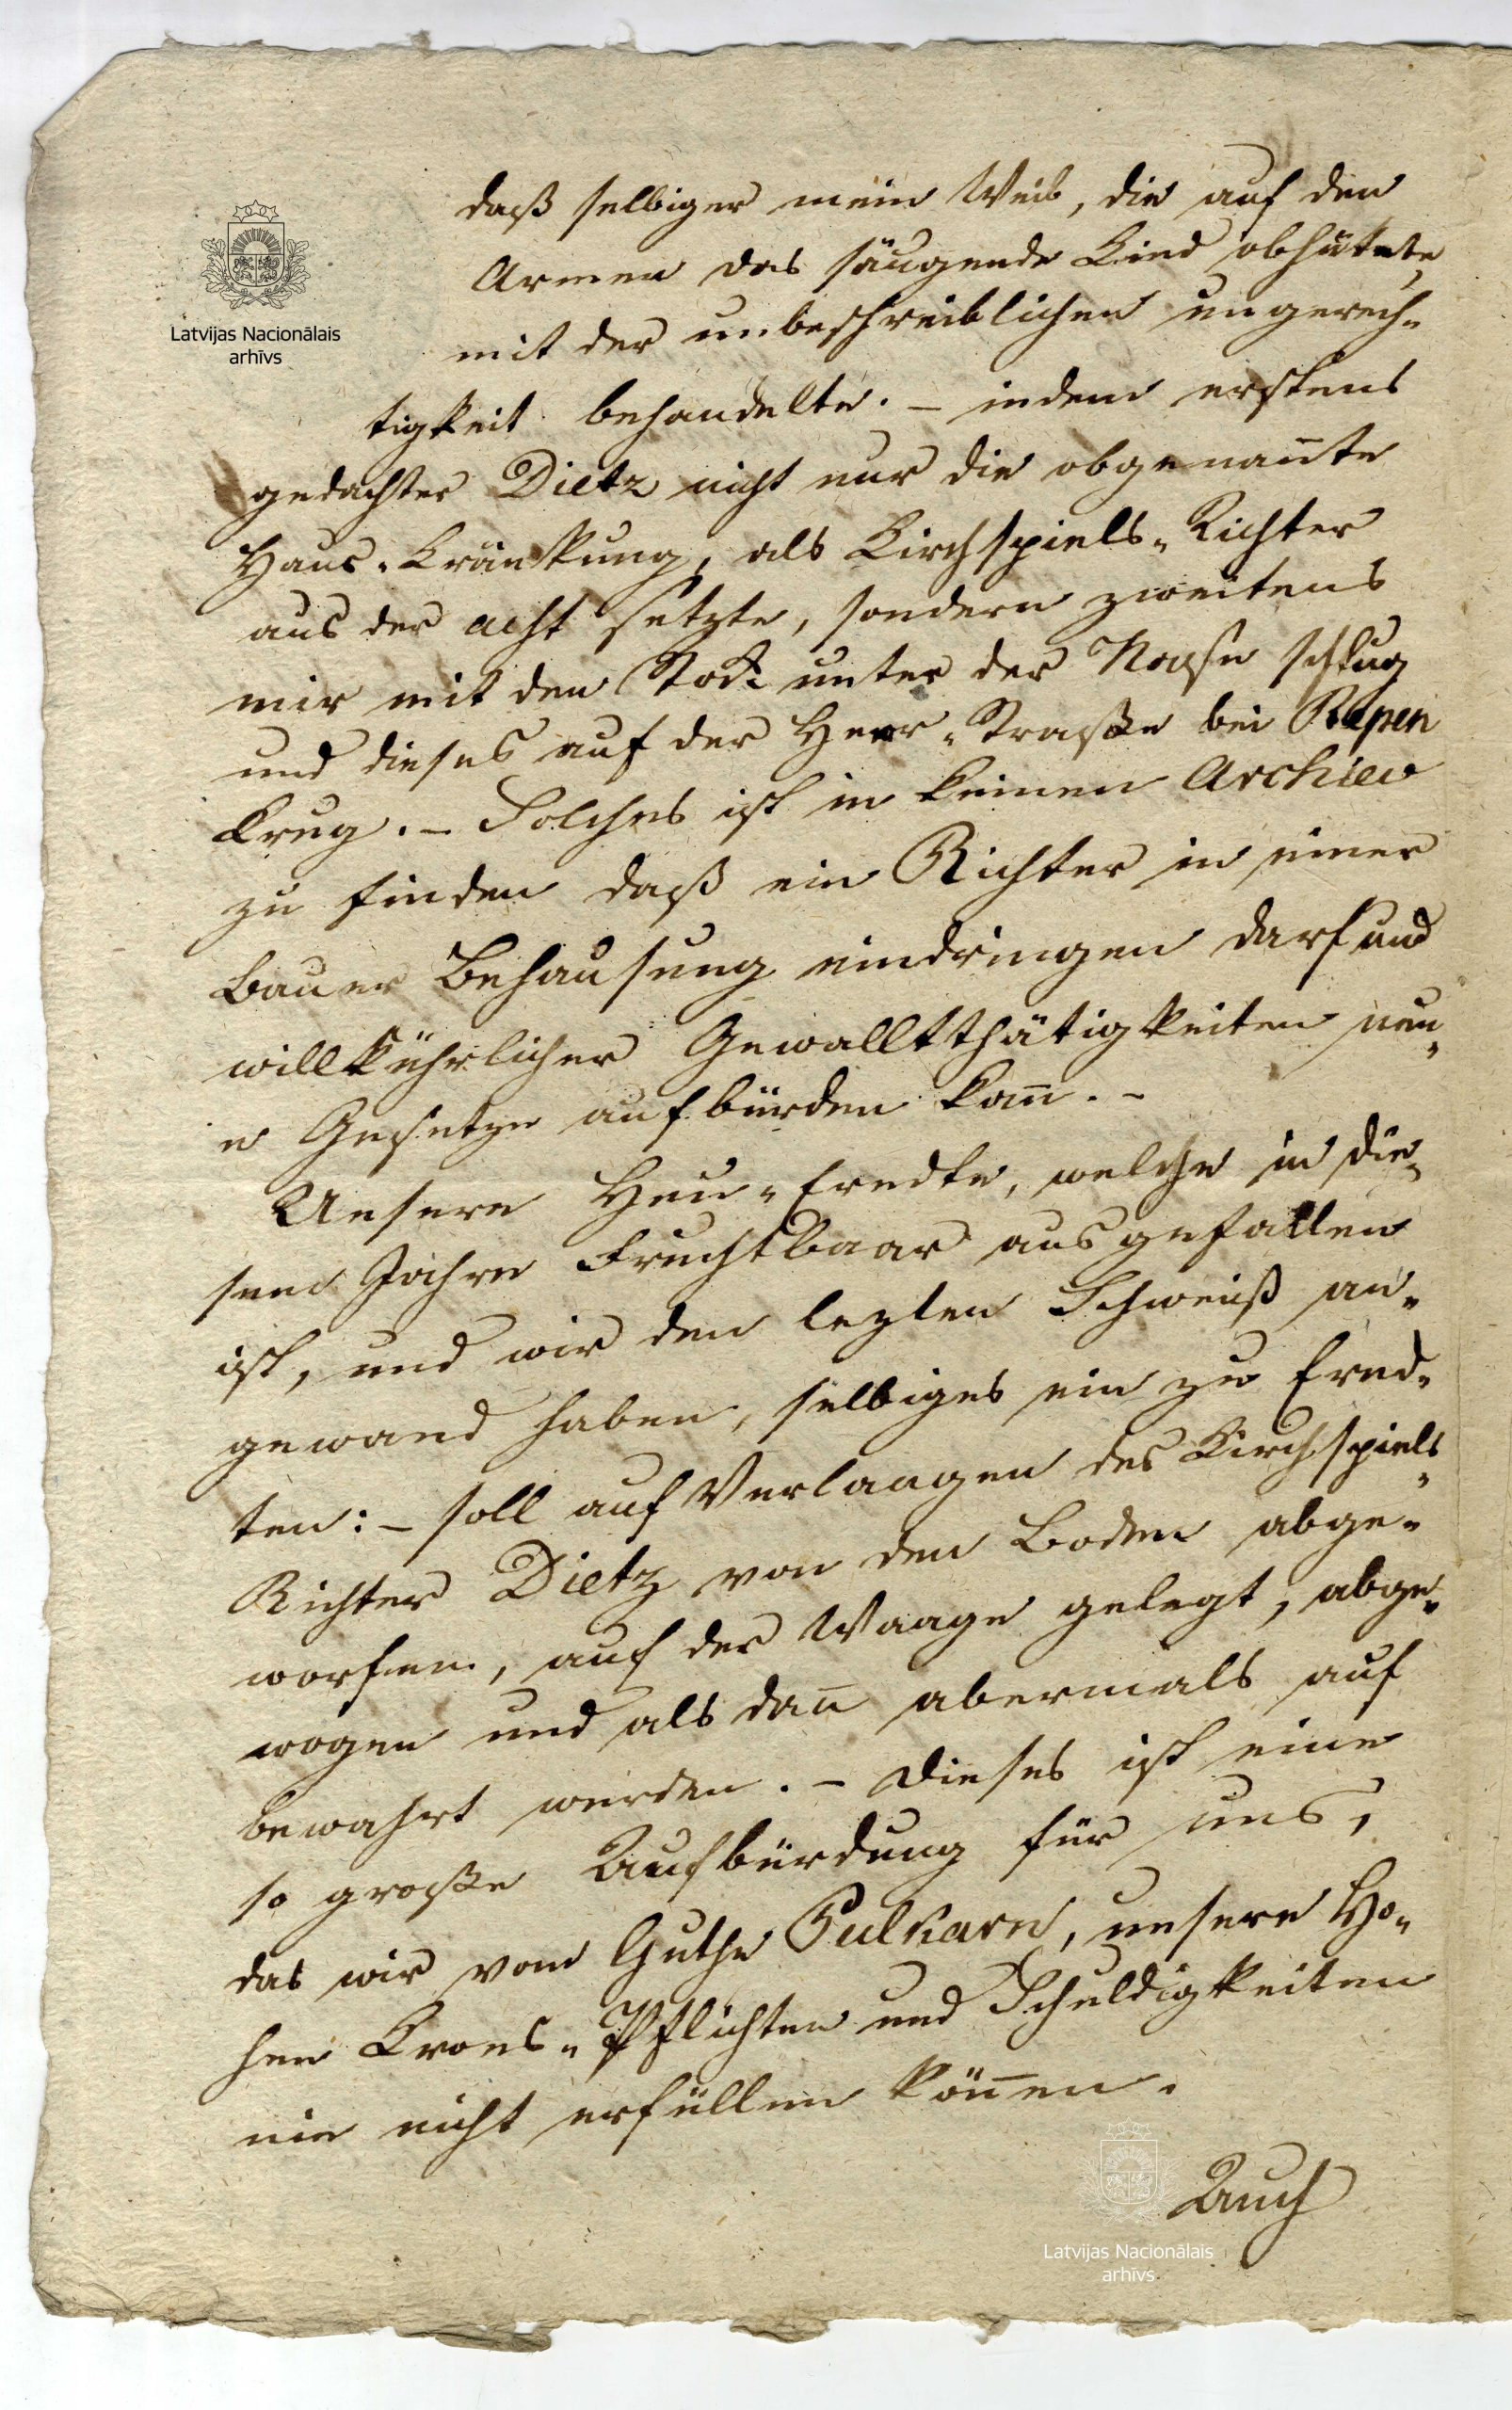 daß selbiger mein Weib, die auf den
Armen das säugende Kind abhütete
mit der unbeschreiblichen ungerech-
tigkeit behandelte. – indem erstens
gedachter Dietz nicht nur die obgenan̄te
Haus-Kränkung, als Kirchspiels-Richter
aus der acht setzte, sondern zweitens
mir mit den Stock unter der Nase schlug
und dieses auf der Heer-Straße bei Repen
Krug. – Solches ist in keinen Archiev
zu finden daß ein Richter in einer
Bauer Behausung eindringen darf und
willkührlicher Gewaltthätigkeiten neu-
e Gesetze aufbürden kan̄. –
Unsere Heu-Erndte, welche in die-
sem Jahre Fruchtbaar ausgefallen
ist, und wir den lezten Schweiß an-
gewand haben, selbiges ein zu Ernd-
ten: – soll auf Verlaagen des Kirchspiels-
Richter Dietz von den Boden abge-
worfen, auf der Waage gelegt, abge-
wogen und als dan̄ abermals auf
bewahrt werden. – Dieses ist eine
so große Aufbürdung für uns,
das wir vom Guthe Pulkarn, unsere Ho-
hen Crons-Pflichten und Schuldigkeiten
nie nicht erfüllen kön̄en.
Auch
Latvijas Nacionālais
arhīvs
Latvijas Nacionālais
arhīvs